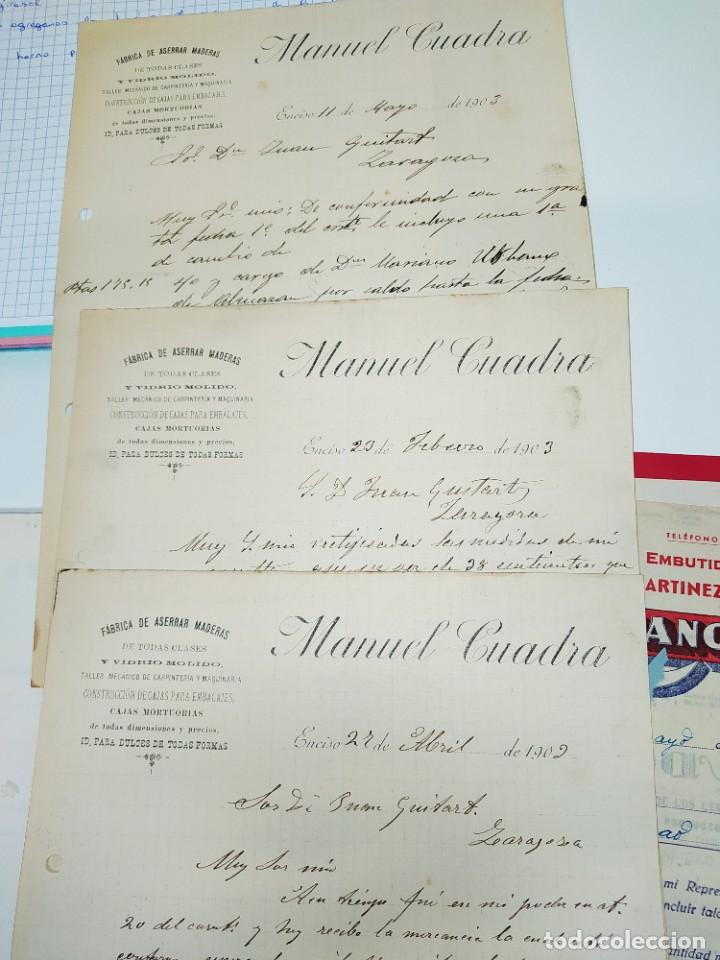 girasol
agregamos
horno
FÁBRICA DE ASERRAR MADERAS
DE TODAS CLASES
Y VIDRIO MOLIDO,
TALLER MECÁNICO DE CARPINTERIA Y MAQUINARIA
CONSTRUCCIÓN DE CAJAS PARA EMBALAJES,
CAJAS MORTUORIAS
de todas dimensiones y precios,
ID. PARA DULCES DE TODAS FORMAS
Manuel Cuadra
Enciso 11 de Mayo de 1903
Sr. Dn Juan Guitart
Zaragoza
Muy Sr. mio: De conformidad con su gra
ta fecha 1º del corte. le incluyo una 1ª
de cambio de
Ptas 175.15
y cargo de Dn Mariano
de Almazan por saldo hasta la fecha
FÁBRICA DE ASERRAR MADERAS
DE TODAS CLASES
Y VIDRIO MOLIDO,
TALLER MECÁNICO DE CARPINTERIA Y MAQUINARIA
CONSTRUCCIÓN DE CAJAS PARA EMBALAJES,
CAJAS MORTUORIAS
de todas dimensiones y precios,
ID. PARA DULCES DE TODAS FORMAS
Manuel Cuadra
Enciso 23 de Febrero de 1903
S. D Juan Guitart
Zaragoza
Muy S. mio rectificadas las medidas de mi
de 38 centimetros que
FÁBRICA DE ASERRAR MADERAS
DE TODAS CLASES
Y VIDRIO MOLIDO,
TALLER MECÁNICO DE CARPINTERIA Y MAQUINARIA
CONSTRUCCIÓN DE CAJAS PARA EMBALAJES,
CAJAS MORTUORIAS
de todas dimensiones y precios,
ID. PARA DULCES DE TODAS FORMAS
Manuel Cuadra
Enciso 27 de Abril de 1902
Sor Dn Juan Guitart.
Zaragoza
Muy Sor mio
en mi poder su at.
20 del corrte. y hoy recibo la mercancia
TELÉFONO
EMBUTID
ARTINEZ
ANC
ayo
DE LOS
mi Repre
ncluir talo
antidad
todocoleccion.net